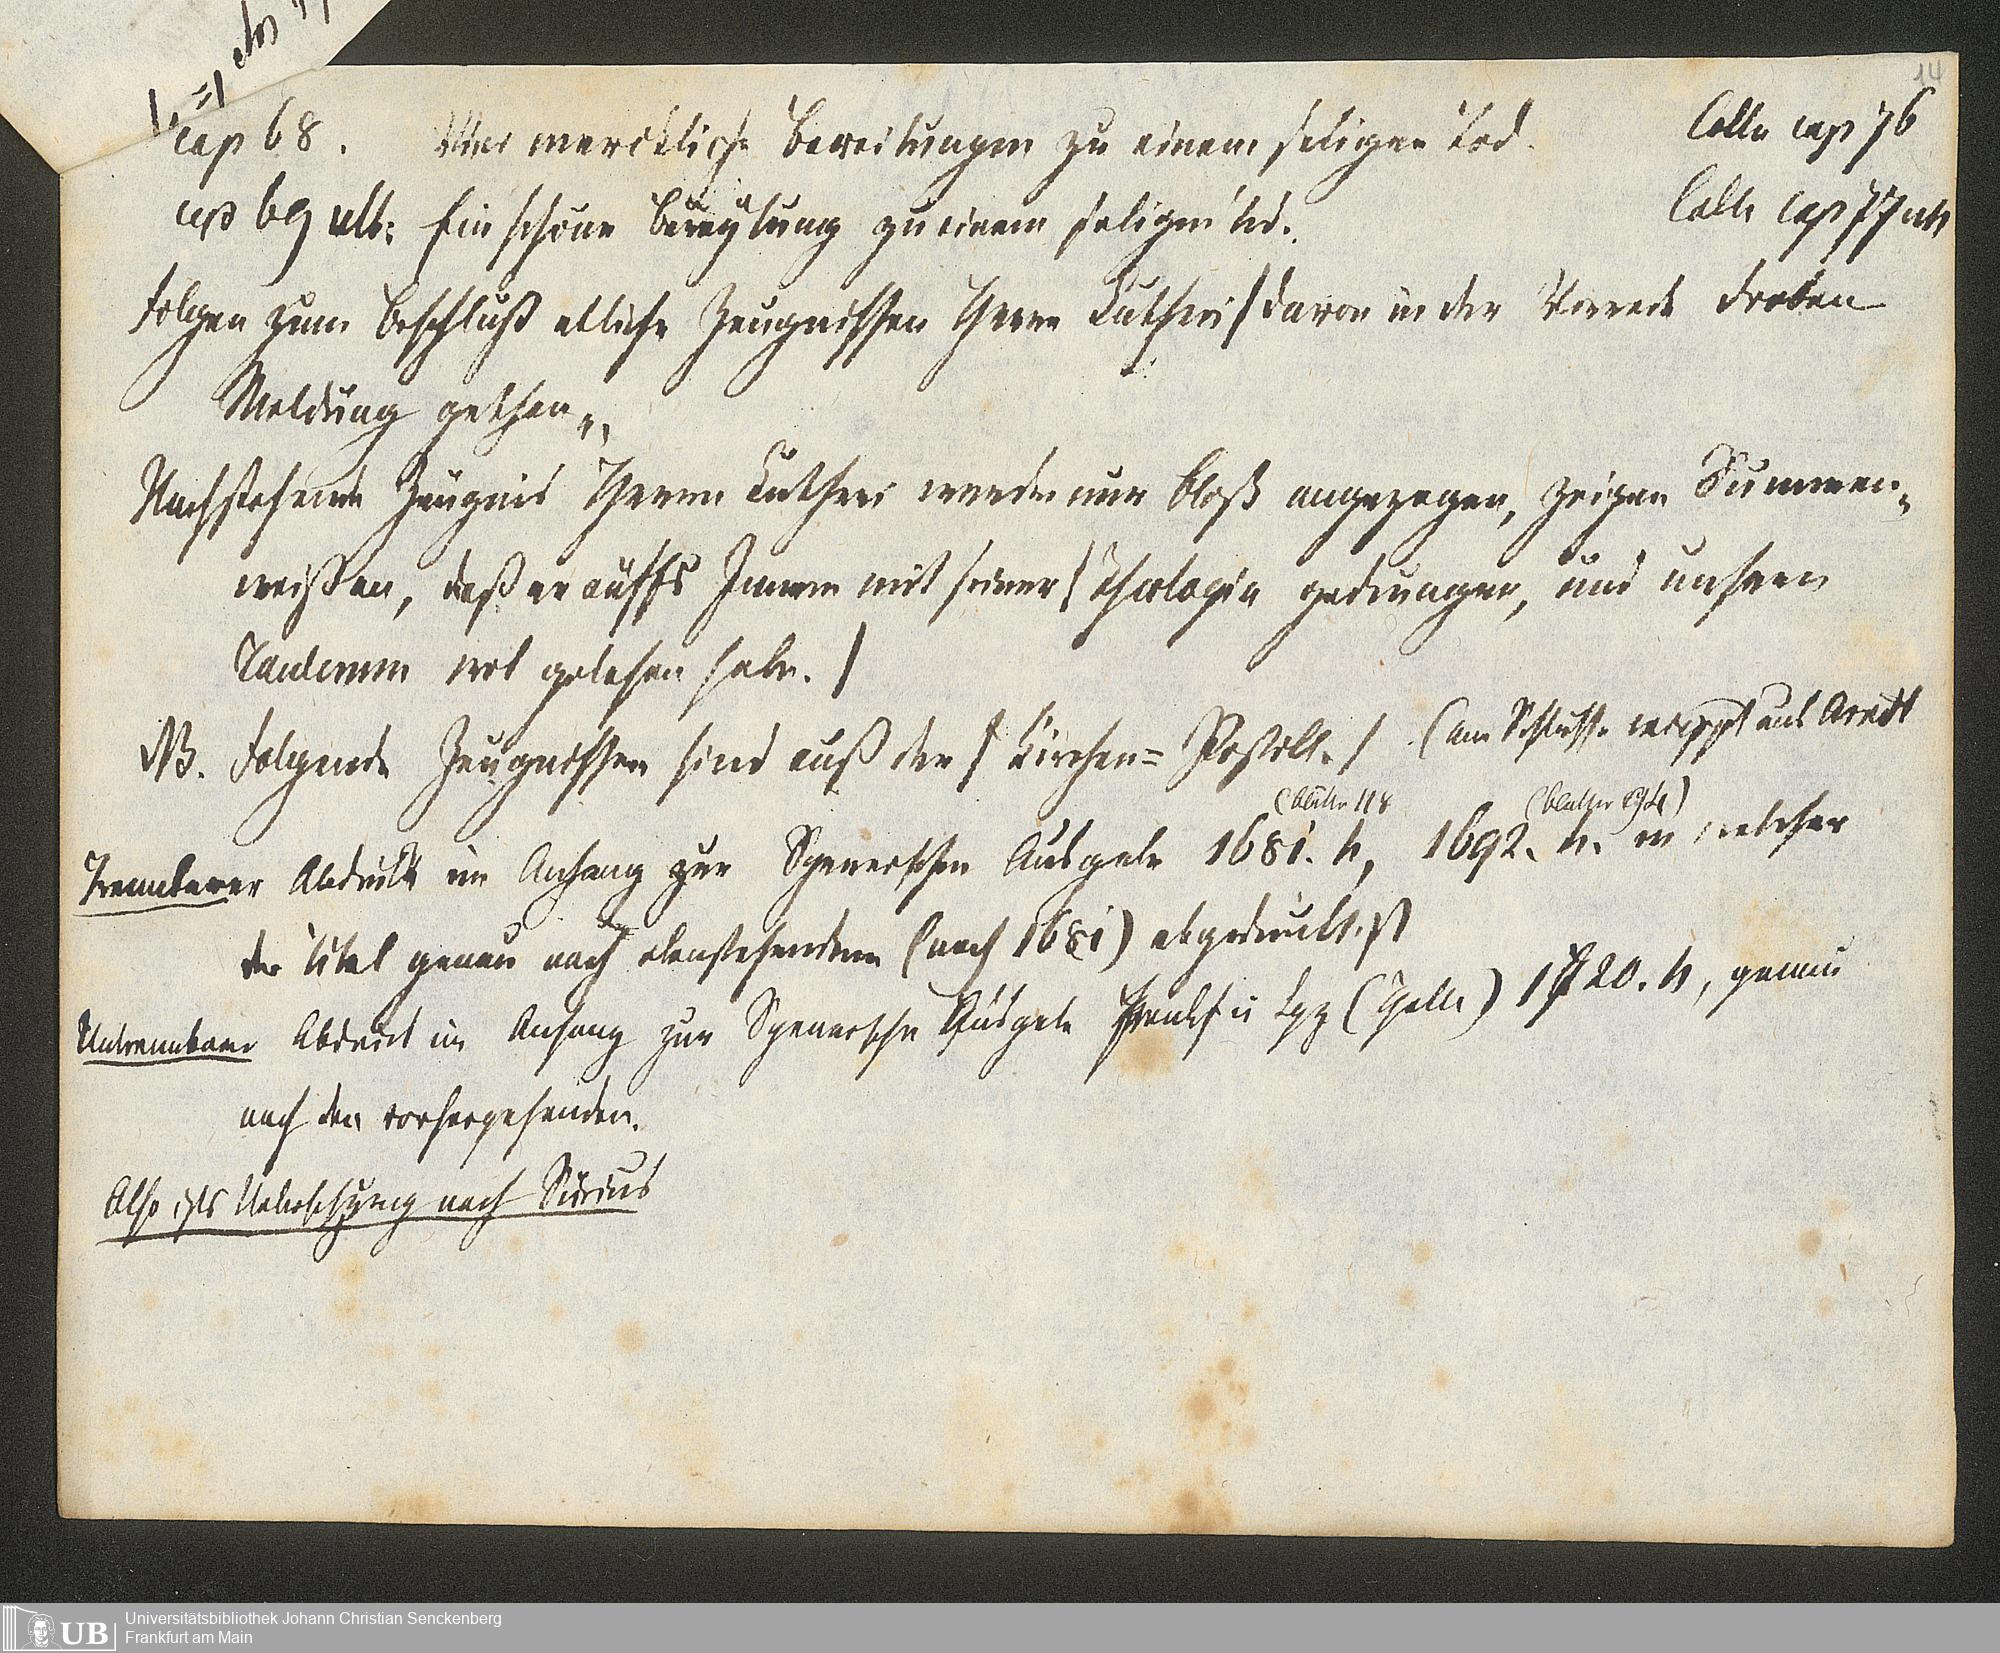 14
cap 68. Vier merckliche Bereitungen zu einem seligen Tod. Cölln cap 76
cap 69 ult: Ein schöne Bereytung zu einem seligen Tod. Cölln cap 77 ult
Folgen zum Beschluß etliche Zeugnissen Herrn Lutheri / davon in der Vorrede droben
Meldung gethan „
Nachstehende Zeugnis Herrn Lutheri werden nur bloß angezogen, zeigen Summen-
weißen, daß er auffs Innere mit seiner / Theologia gedrungen, und unseren
Taulerum wol gelesen habe. /
NB. Folgende Zeugnissen sind auß der / Kirchen= Postill. / (am Schlusse aus Arndt
(blätter 118 (blätter 194)
Trennbarer Abdruck im Anhang zur Spenerschen Ausgabe 1681. 4, 1692. 4. in welcher
der Titel genau nach obenstehendem (nach 1681) abgedruckt ist
Untrennbarer Abdruck im Anhang zur Spenerschen Ausgabe Frankf u Lpz 1720. 4, genau
nach den vorhergehenden.
Also ists Uebersetzung nach Surius
UB
Universitätsbibliothek Johann Christian Senckenberg
Frankfurt am Main